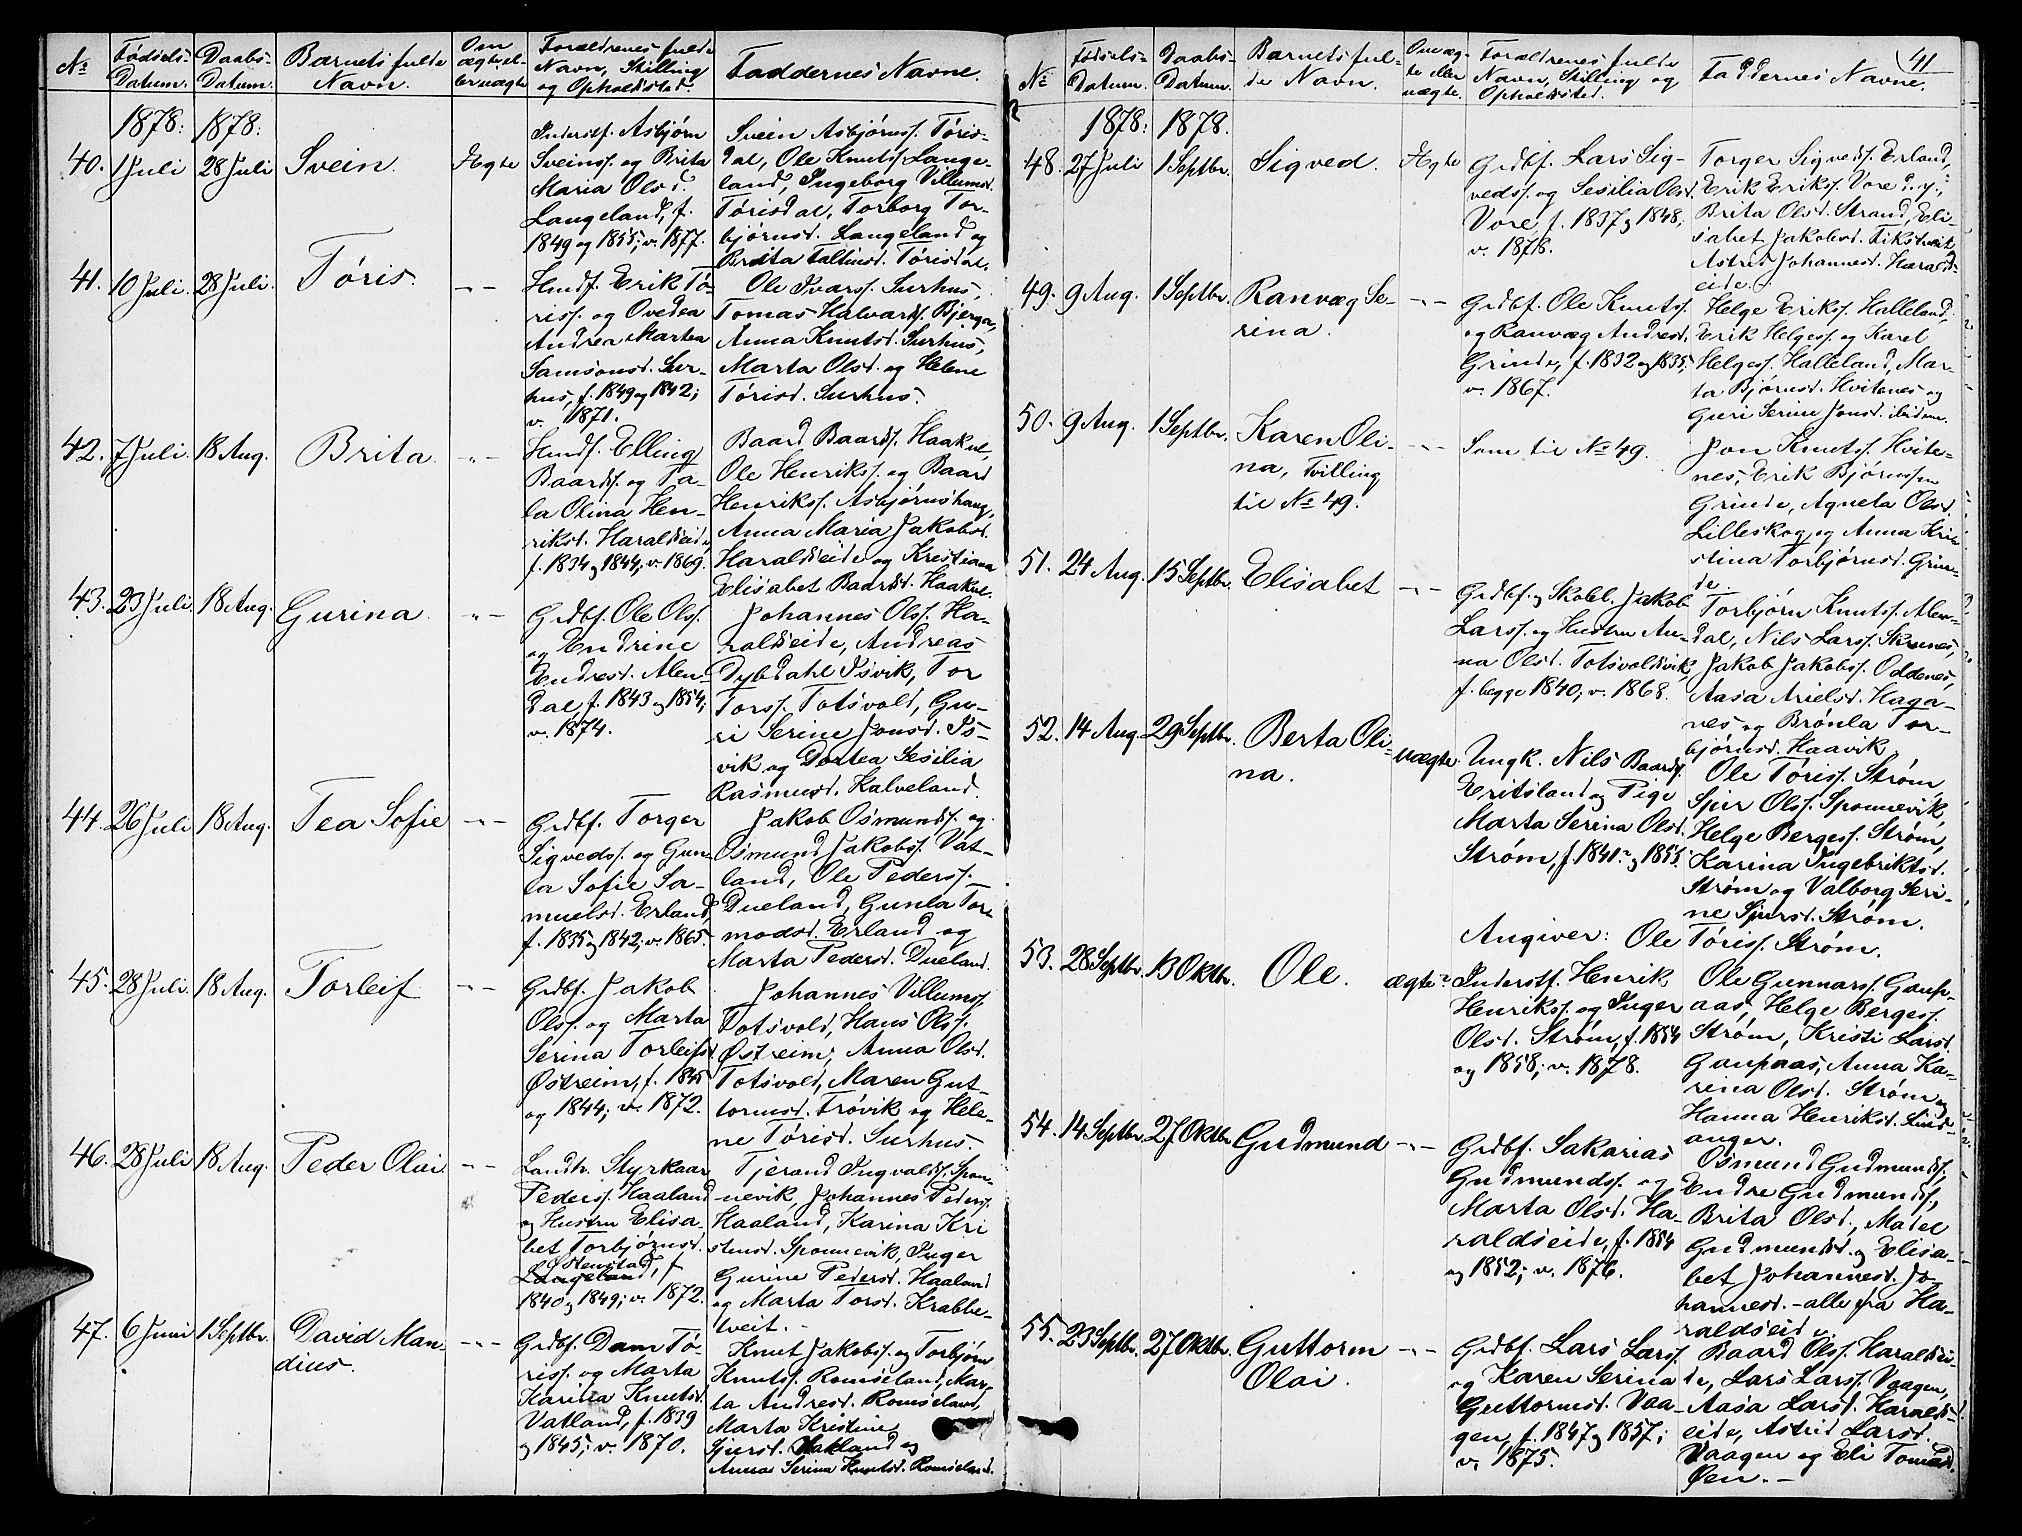 №
Fødsels-
Datum.
Daabs-
Datum.
Barnets fulde
Navn.
Om
ægte el-
ler uægte
Forældrenes fulde
Navn, Stilling
og Opholdssted.
Faddernes Navne.
1878: 1878:
40. 1 Juli 28 Juli Svein. Ægte
Inderstf. Asbjørn
Sveinss. og Brita
Maria Olsd.
Langeland, f.
1849 og 1855; v. 1877.
Svein Asbjørnss. Tøris-
dal, Ole Knutss. Lange-
land, Ingeborg Villumsd.
Tørisdal, Torborg Tor-
bjørnsd. Langeland og
Brita Faltinsd. Tørisdal.
41. 10 Juli. 28 Juli. Tøris. -"-
Husmf. Erik Tø-
riss. og Ovedea
Andrea Martea
Samsonsd. Sur-
hus, f. 1849 og 1842;
v. 1871.
Ole Ivarss. Surhus,
Tomas Halvards. Bjerga,
Anna Knutsd. Surhus,
Marta Olsd. og Helene
Tørisd. Surhus.
42. 7 Juli. 18 Aug. Brita. -"-
Husmf. Elling
Baards. og Ta-
la Olina Hen-
riksd. Haraldseide,
f. 1834 og 1844; v. 1869.
Baard Baards. Haakul,
Ole Henrikss. og Baard
Henrikss. Asbjørnshaug,
Anna Maria Jakobsd.
Haraldseide og Kristiana
Elisabet Baardsd. Haakul.
43. 23 Juli. 18 Aug. Gurina. -"-
Grdbf. Ole Olss.
og Endrine
Endresd. Alen-
dal f. 1843 og 1854;
v. 1874.
Johannes Olss. Ha-
raldseide, Andreas
Dybdahl Isvik, Tor
Torss. Totsvold, Gu-
ri Serine Jonsd. Is-
vik og Dortea Sesilia
Rasmusd. Kalveland.
44. 26 Juli 18 Aug. Tea Sofie -"-
Grdbf. Torger
Sigvedss. og Gun-
la Sofie Sa-
muelsd. Erland,
f. 1835 og 1842; v. 1865.
Jakob Osmunds. og
Osmund Jakobss. Vat-
land, Ole Pederss.
Dueland, Gunla Tor-
modsd. Erland og
Marta Pedersd. Dueland.
45. 28 Juli. 18 Aug. Torleif -"-
Grdbf. Jakob
Olss. og Marta
Serina Torleifsd
Østreim, f. 1845
og 1844; v. 1872.
Johannes Villumss.
Totsvold, Hans Olss.
Østreim, Anna Olsd.
Totsvold, Maren Gut-
tormsd. Frøvik og Hele-
ne Tørisd. Surhus
46. 28 Juli 18 Aug. Peder Olai -"-
Landh. Styrkaar
Pederss. Haaland
og Hustru Elisa-
bet Torbjørnsd.
Stenstad, f
Langeland,
1840 og 1849; v. 1872.
Tjerand Ingvalds. Spon-
nevik, Johannes Peders.
Haaland, Karina Kri
stensd. Sponnevik, Inger
Gurine Pedersd. Haaland
og Marta Torsd. Krabbe-
tveit.
47. 6 Juni 1 Septbr. David Man-
dius. -"-
Grdbf. Dam Tø-
riss. og Marta
Karina Knutsd.
Vatland, f. 1839
og 1845; v. 1870.
Knut Jakobss. og Torbjørn
Knutss. Romseland, Mar-
ta Andresd. Romseland,
Marta Kristine
Sjursd. Vatland og
Anna Serina Knutsd. Romseland.
№
Fødsels-
Datum.
Daabs-
Datum.
Barnets ful-
de Navn.
Om æg-
te eller
uægte.
Forældrenes fulde
Navn, Stilling og
Opholdssted.
Faddernes Navne.
41
1878: 1878.
48. 27 Juli 1 Septbr. Sigved. Ægte
Grdbf. Lars Sig-
vedss. og Sesilia Olsd.
Vore, f. 1837 og 1848;
v. 1878.
Torger Sigvedss. Erland,
Erik Erikss. Vore d. y.;
Brita Olsd. Strand, Eli-
sabet Jakobsd. Fikstveit,
Astrid Johannesd. Harald-
eide.
49. 9 Aug. 1 Septbr. Ranvæg Se-
rina. -"-
Grdbf. Ole Knutss.
og Ranvæg Andresd.
Grinde, f. 1832 og 1835;
v. 1867.
Helge Erikss. Halleland,
Erik Helgess. og Karel
Helgess. Halleland, Mar-
ta Bjørnsd. Hvitenes og
Guri Serine Jonsd. ibidem.
50. 9 Aug. 1 Septbr. Karen Oli-
na, Tvilling
til № 49. -"-
Som til № 49.
Jon Knutss. Hvite-
nes, Erik Bjørnssøn
Grinde, Agneta Olsd.
Lilleskog og Anna Kri-
stina Torbjørnsd. Grin-
de.
51. 24 Aug. 15 Septbr. Elisabet -"-
Grdbf. og Skolel. Jakob
Larss. og Hustru An-
na Olsd. Totsvoldsvik,
f. begge 1840; v. 1868.
Torbjørn Knutss. Alen-
dal, Nils Larss. Skrunes,
Jakob Jakobss. Oddenes,
Aasa Arielsd. Haga-
nes og Brønla Tor-
bjørnsd. Haavik.
52. 14 Aug. 29 Septbr. Berta Oli-
na. uægte
Ungk. Nils Baards.
Eritsland og Pige
Marta Serina Olsd.
Strøm, f. 1841? og 1855.
Ole Tøriss. Strøm,
Sjur Olss. Sponnevik,
Helge Bergess. Strøm,
Karina Ingebriktsd.
Strøm og Valborg Seri-
ne Sjursd. Strøm.
Angiver: Ole Tøriss. Strøm.
53. 28 Septbr. 13 Oktbr. Ole. ægte?
Inderstf. Henrik
Henrikss. og Inger
Olsd. Strøm, f. 1854
og 1858; v. 1878.
Ole Gunnarss. Gaup-
aas, Helge Bergess.
Strøm, Kristi Larsd.
Gaupaas, Anna Ka-
rina Olsd. Strøm og
Hanna Henriksd. Lind-
anger.
54. 14 Septbr. 27 Oktbr Gudmund -"-
Grdbf. Sakarias
Gudmundss. og
Marta Olsd. Ha-
raldseide, f. 1854
og 1852; v. 1876.
Osmund Gudmunds.,
Endre Gudmunds.,
Brita Olsd., Madel
Gudmundsd. og Elisa-
bet Johannesd. Jo-
hannesd. - alle fra Ha-
raldseide.
55. 23 Septbr. 27 Oktbr. Guttorm
Olai. -"-
Grdbf. Lars Larss.
og Karen Serina
Guttormsd. Vaa-
gen, f. 1847 og 1857;
v. 1875.
Baard Olss. Haraldsei-
de, Lars Larss. Vaagen,
Aasa Larsd. Haralds-
eide, Astrid Larsd.
Vaagen og Eli Tomasd.
Øen. -